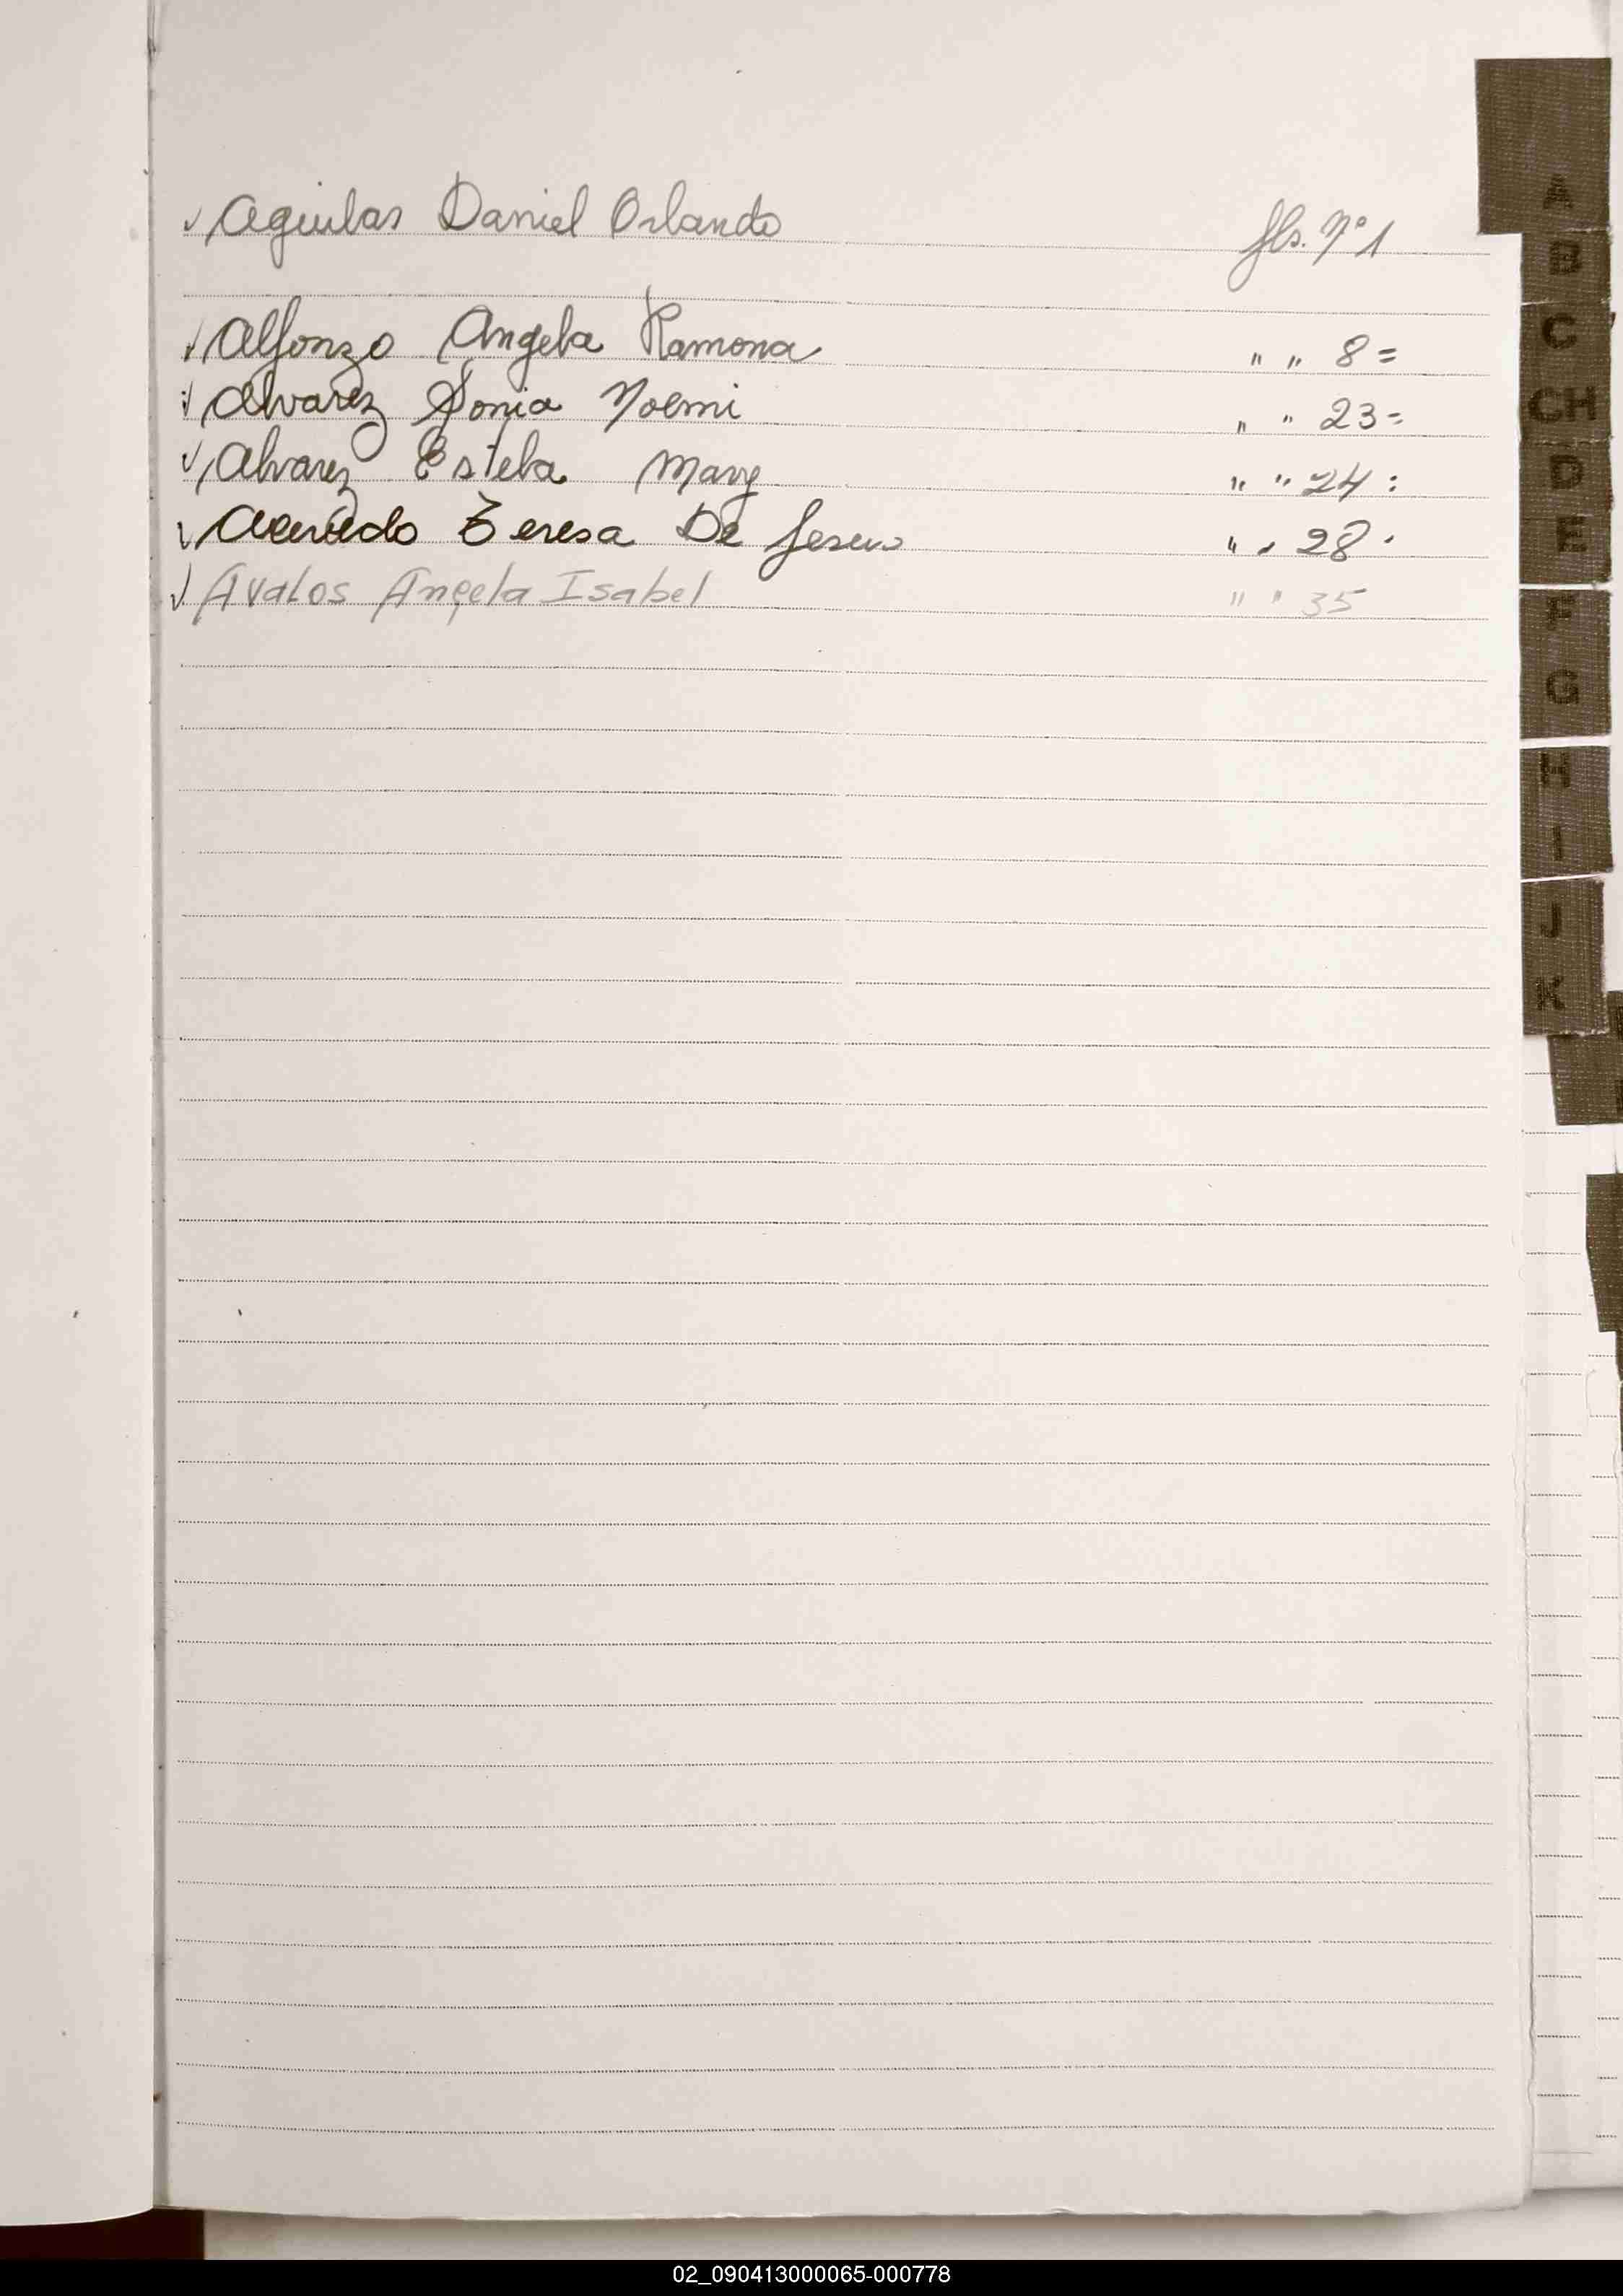 ✓ Aguilar Daniel Orlando fls. Nº 1
✓ Alfonzo Angela Ramona " " 8=
✓ Alvarez Sonia Noemi " " 23=
✓ Alvarez Estela Mary " " 24:
✓ Acevedo Teresa De Jesus " " 28·
✓ Avalos Angela Isabel " " 35
A
B
C
CH
D
E
F
G
H
I
J
K
02_090413000065-000778